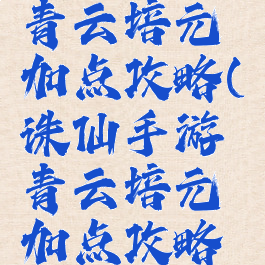 青云培元
加点攻略(
诛仙手游
青云培元
加点攻略